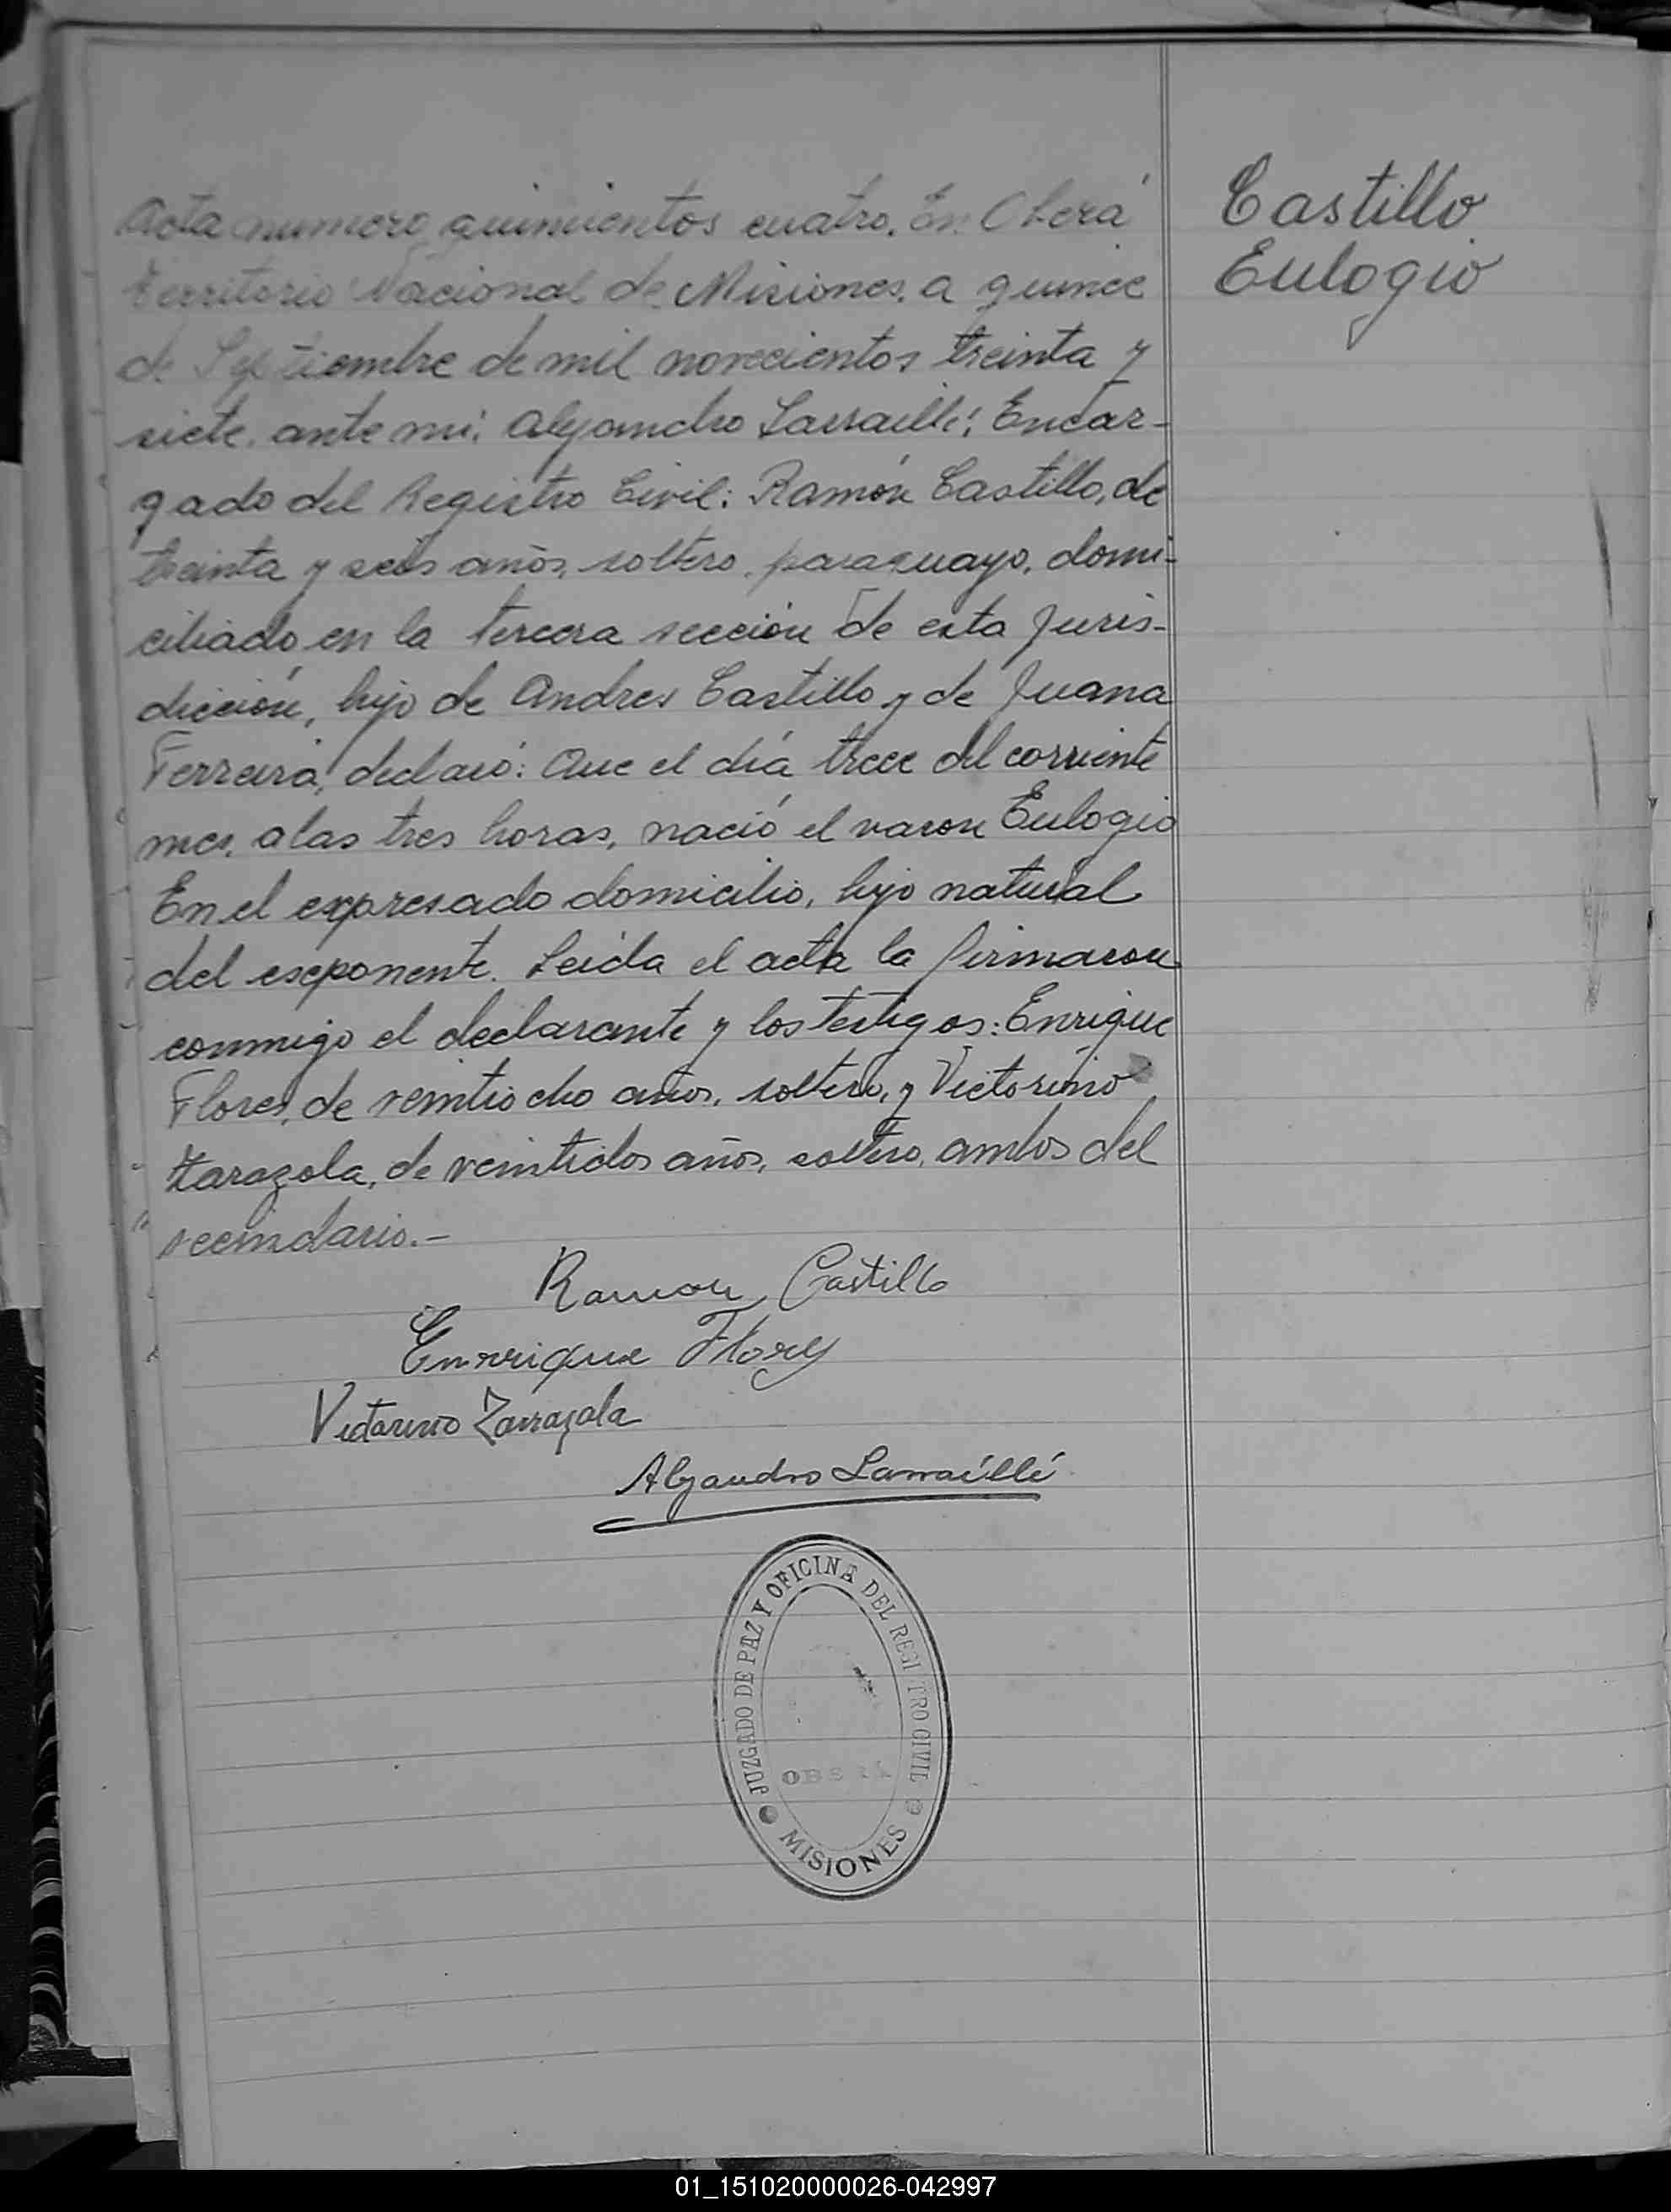 Castillo
Eulogio
Acta numero quinientos cuatro. En Oberá
Territorio Nacional de Misiones, a quince
de Septiembre de mil novecientos treinta y
siete, ante mi: Alejandro Larraillé; Encar-
gado del Registro Civil: Ramón Castillo, de
treinta y seis años, soltero, paraguayo, domi-
ciliado en la tercera sección de esta Juris-
dicción, hijo de Andres Castillo y de Juana
Ferreira, declaró: Que el día trece del corriente
mes, a las tres horas, nació el varon Eulogio
En el expresado domicilio, hijo natural
del esponente. Leída el acta la firmaron
conmigo el declarante y los testigos: Enrique
Flores, de veintiocho años, soltero, y Victorino
Zarazola, de veintidos años, soltero, ambos del
vecindario.-
Ramon Castillo
Enrrique Flores
Victorino Zarrazola
Alejandro Larraillé
JUZGADO DE PAZ Y OFICINA DEL REGI TRO CIVIL
OBERA
MISIONES
01_151020000026-042997